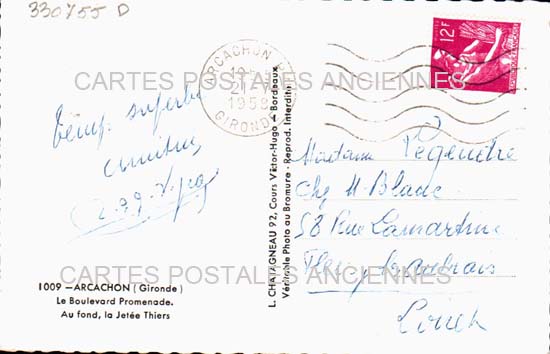 330755 D
12F
ARCACHON
1959
GIRONDE
CARTES POSTALES ANCIENNES
Temps superbe
Madame Legendre
Chez M. Blanc
58 Rue Lamartine
Fleury
Loiret
CARTES POSTALES ANCIENNES
1009 — ARCACHON (Gironde)
Le Boulevard Promenade.
Au fond, la Jetée Thiers
L. CHATAGNEAU 92, Cours Victor-Hugo - Bordeaux
Véritable Photo au Bromure - Reprod. Interdite